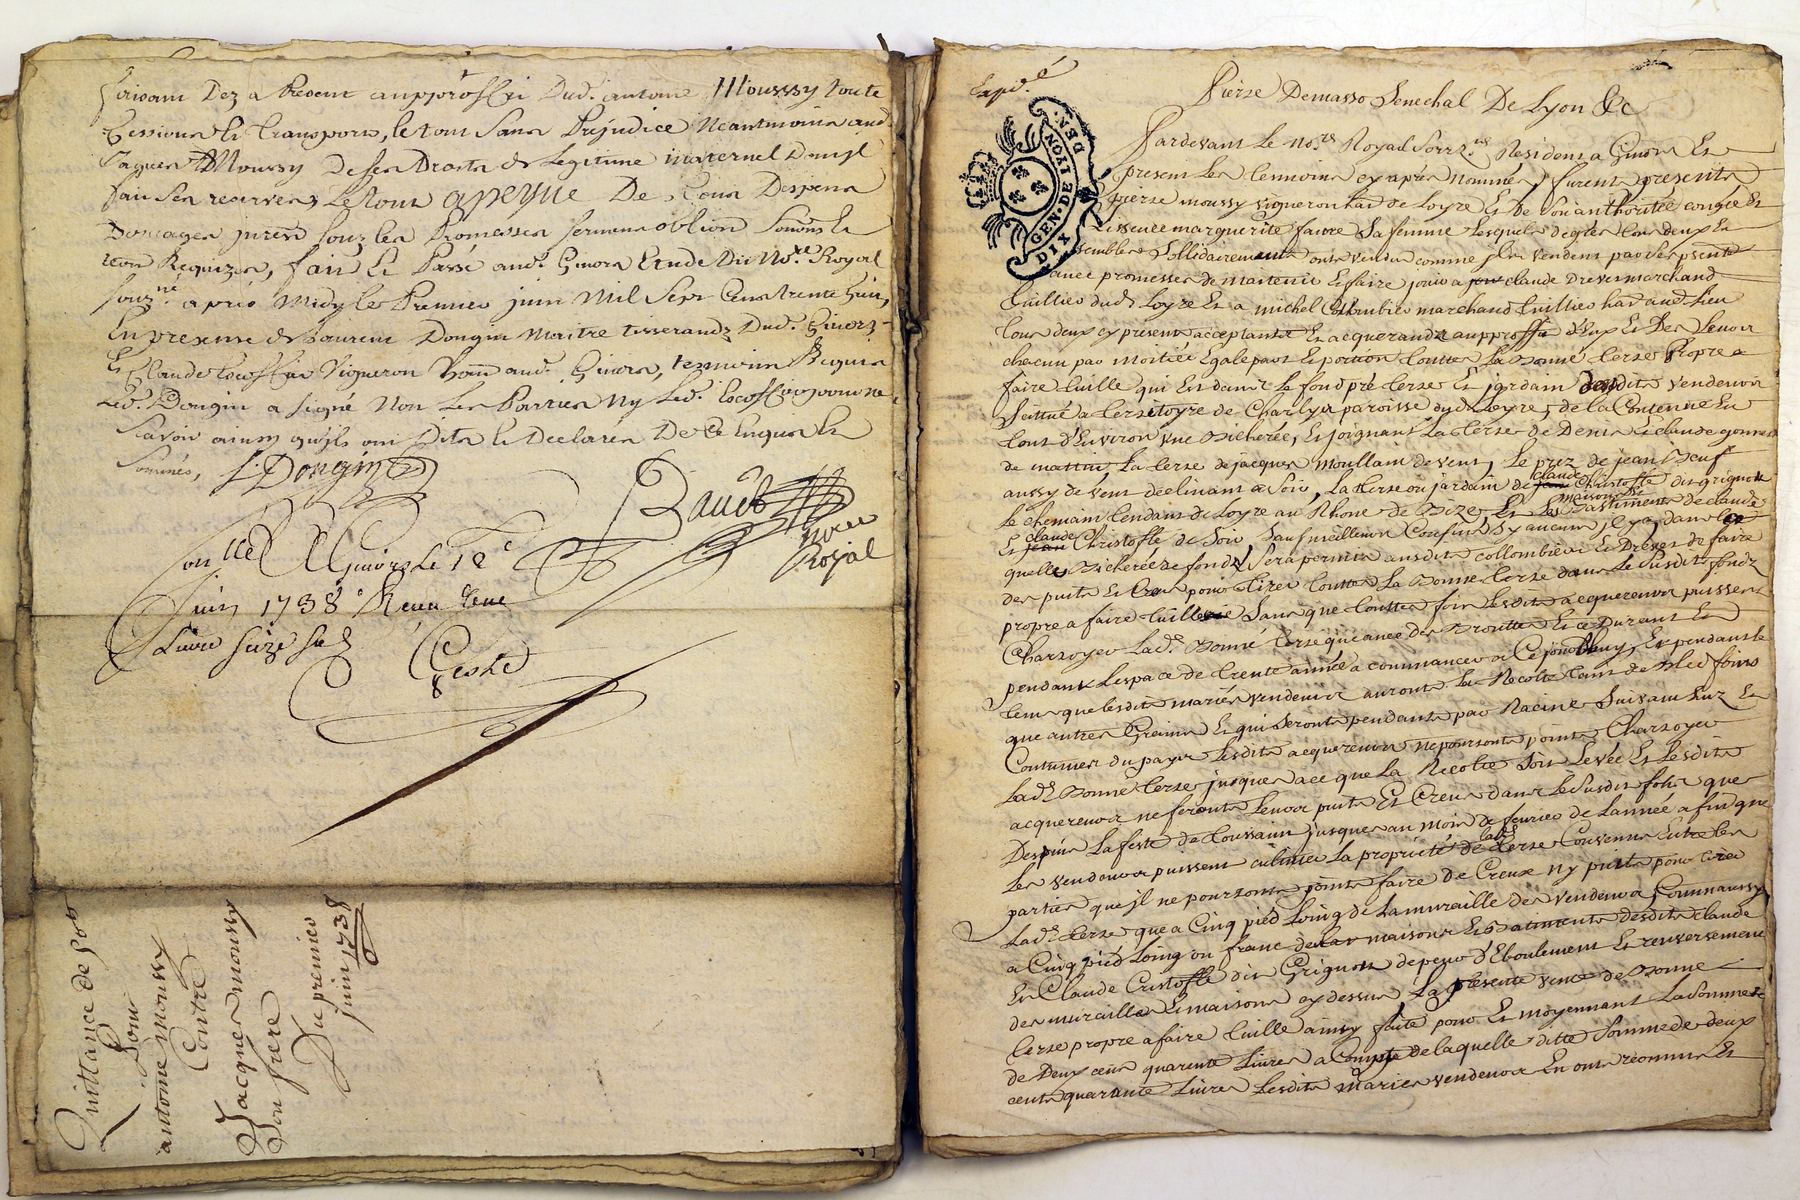 faisant Dez a Present aupproffit Dud. antoine Moussy toute
Cessions et transports, le tout Sans Prejudice Neantmoins aud
Jaques Moussy de ses Droits de Legitime maternel Dont jl
fait ses reserves, Le tout a peyne De tous Despens
Domages jurent souz les Promesses sermens oblion soumis et
reon Requizes, fait et Passé aud. Givors Etude Du No.re Royal
souz.né après Midy le Premier juin Mil Sept Cens trente huit,
En presence de Laurent Dongin Maitre tisserandz Dud. Givors
Et Claude Vigneron aud. Givors, temoins Requis
Led. Dongin a signé Non Les Parties Ny Led. pour ne
scavoir ainsy qu'ils ont Dit et Declarés De Ce Enquis et
Sommés, L. Dongin
Bauet
No.re
Royal
Conllé A Givors Le 12e
Juin 1738 Receu
Livre seize s
Quittance de 500
Pour
antoine moussy
Contre
Jacques moussy
son frere
Du premier
juin 1738
Expé.é
Pierre Demasso Senechal De Lyon &c
GEN. DE LYON
DIX DEN.
Pardevant Le No.re Royal Souz.né Resident a Givors Et
present Les temoins cy après Nommés, furent presents
pierre moussy vigneron hād de Loyre Et de son authoritée congée et
Licence marguerite faure Sa femme Lesquels de gré tous deux En
semble Sollidairement ont vendu comme jls vendent par Ses presente
avec promesses de maitenir Et faire jouir a claude Dreves marchand
tuillier dud. Loyre Et a michel Collombier marchand tuillier hād aud. lieu
tous deux cy present acceptants Et acquerands auproffit d'Eux Et Des Leurs
chacun par moitiée Egale part Et portion toutte La Bonne terre Propre a
faire tuille qui Est dans Le fond pré terre Et jardain desdits vendeurs
Scittué a territoyre de Charlyn paroisse dud. Loyre, de la Contenue En
tout d'Environ une Bicherée, Et joignant La terre de Denis Et claude gonnet
de mattin, La terre de jacques moullam de vent, Le prez de jean Beuf
aussy de vent declinant a Soir, La terre ou jardain de claude Christofle dit grignon
Le chemain tendant de Loyre au Rhone de Bize, Et Les maisons et Bastiments de claude
Et claude Christofle de Soir Sauf meilleurs Confins Sy aucuns jl ya, dans la
quelle Bicherée de fondz Sera permis ausdits collombier Et Dreves de faire
des puits Et Creu pour tirer toutte La Bonne terre dans Le Susdit fondz
propre a faire tuille Sans que touttes fois Lesdits acquereurs puissent
Charroyer Lad. Bonne terre qu'avec des Brouttes Et ce Durant Et
pendant Lespace de trente année a commancer a Ce jourdhuy, Et pendant le
tems que lesdits mariés vendeurs auront La Recolte tant de Bled foins
que autres Grains Et qui Seront pendants par Racine Suivant Suz Et
Coutumes du payis Lesdits acquereurs ne pourront point Charroyer
Lad. Bonne terre jusques a ce que La Recolte Soit Levée Et Lesdits
acquereurs ne feronts Leurs puits Et Creus dans Le Susdit fonds que
Despuis La feste de toussaint jusques au mois de feurier de Lannée afin que
Les vendeurs puissent cultiver La proprieté de lad. terre Convenus Entre les
parties que jl ne pourront point faire de Creux ny puits pour tirer
Lad. terre que a Cinq pied Loing de La muraille des vendeurs, Comm aussy
a Cinq pied Loing ou franc des maisons Et Batiments desdits claude
Et Claude Cristofle dit Grignon de peur d'Eboulement Et renversement
des murailles Et maisons cy dessus, La presente vente de Bonne
terre propre a faire tuille ainsy faite pour Et moyennant La Somme
de Deux cens quarente Livres a Compte de laquelle ditte Somme de deux
cents quarante Livres Lesdits Mariés vendeurs En ont reconnus Et